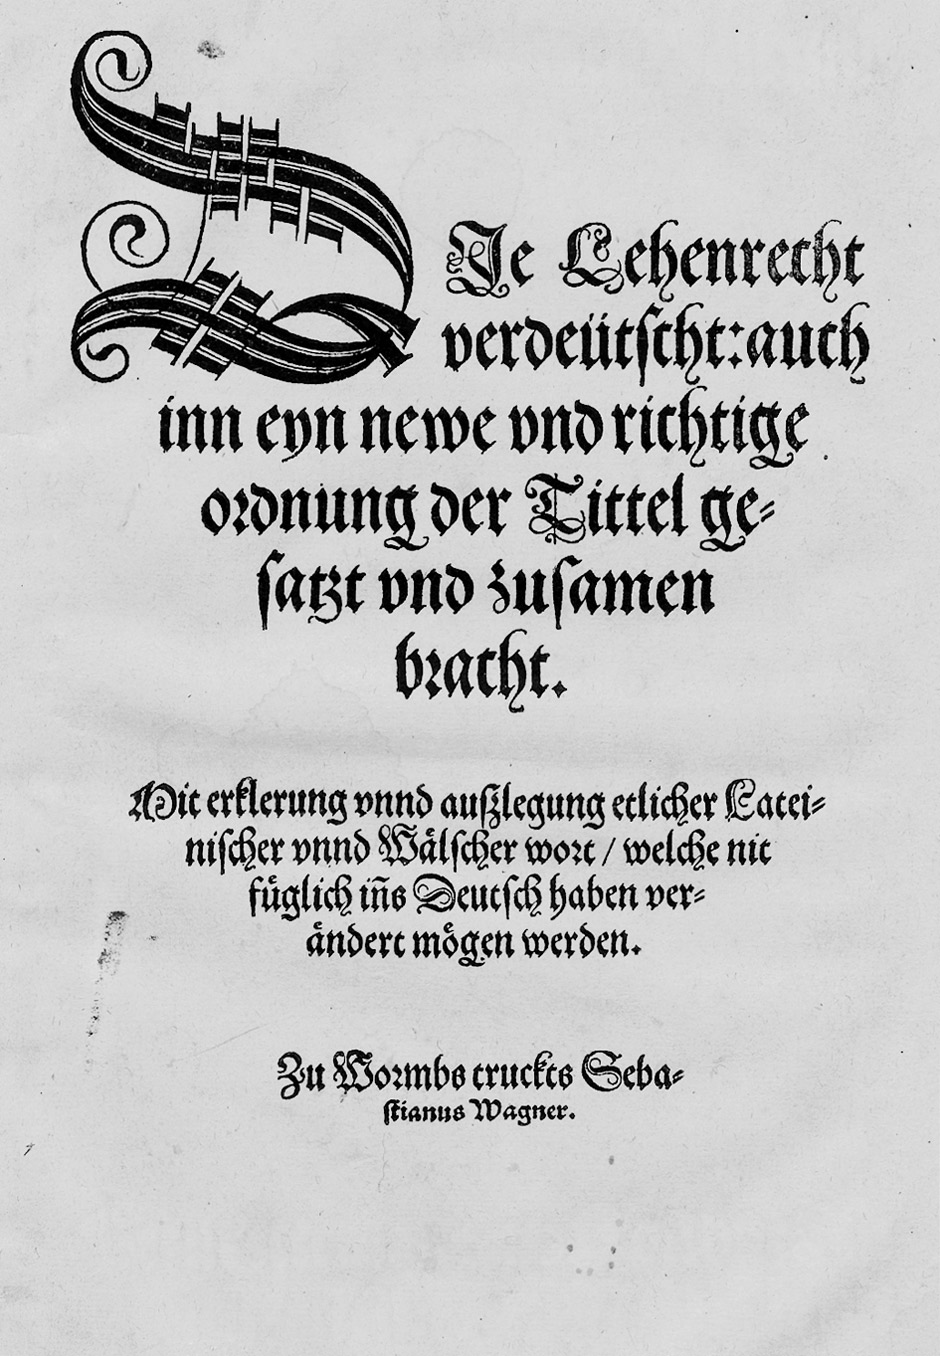 DJe Lehenrecht
verdeütscht: auch
inn eyn newe vnd richtige
ordnung der Tittel ge⸗
satzt vnd zusamen
bracht.
Mit erklerung vnnd außlegung etlicher Latei⸗
nischer vnnd Wälscher wort / welche nit
füglich iñs Deutsch haben ver⸗
ändert mögen werden.
Zu Wormbs truckts Seba⸗
stianus Wagner.